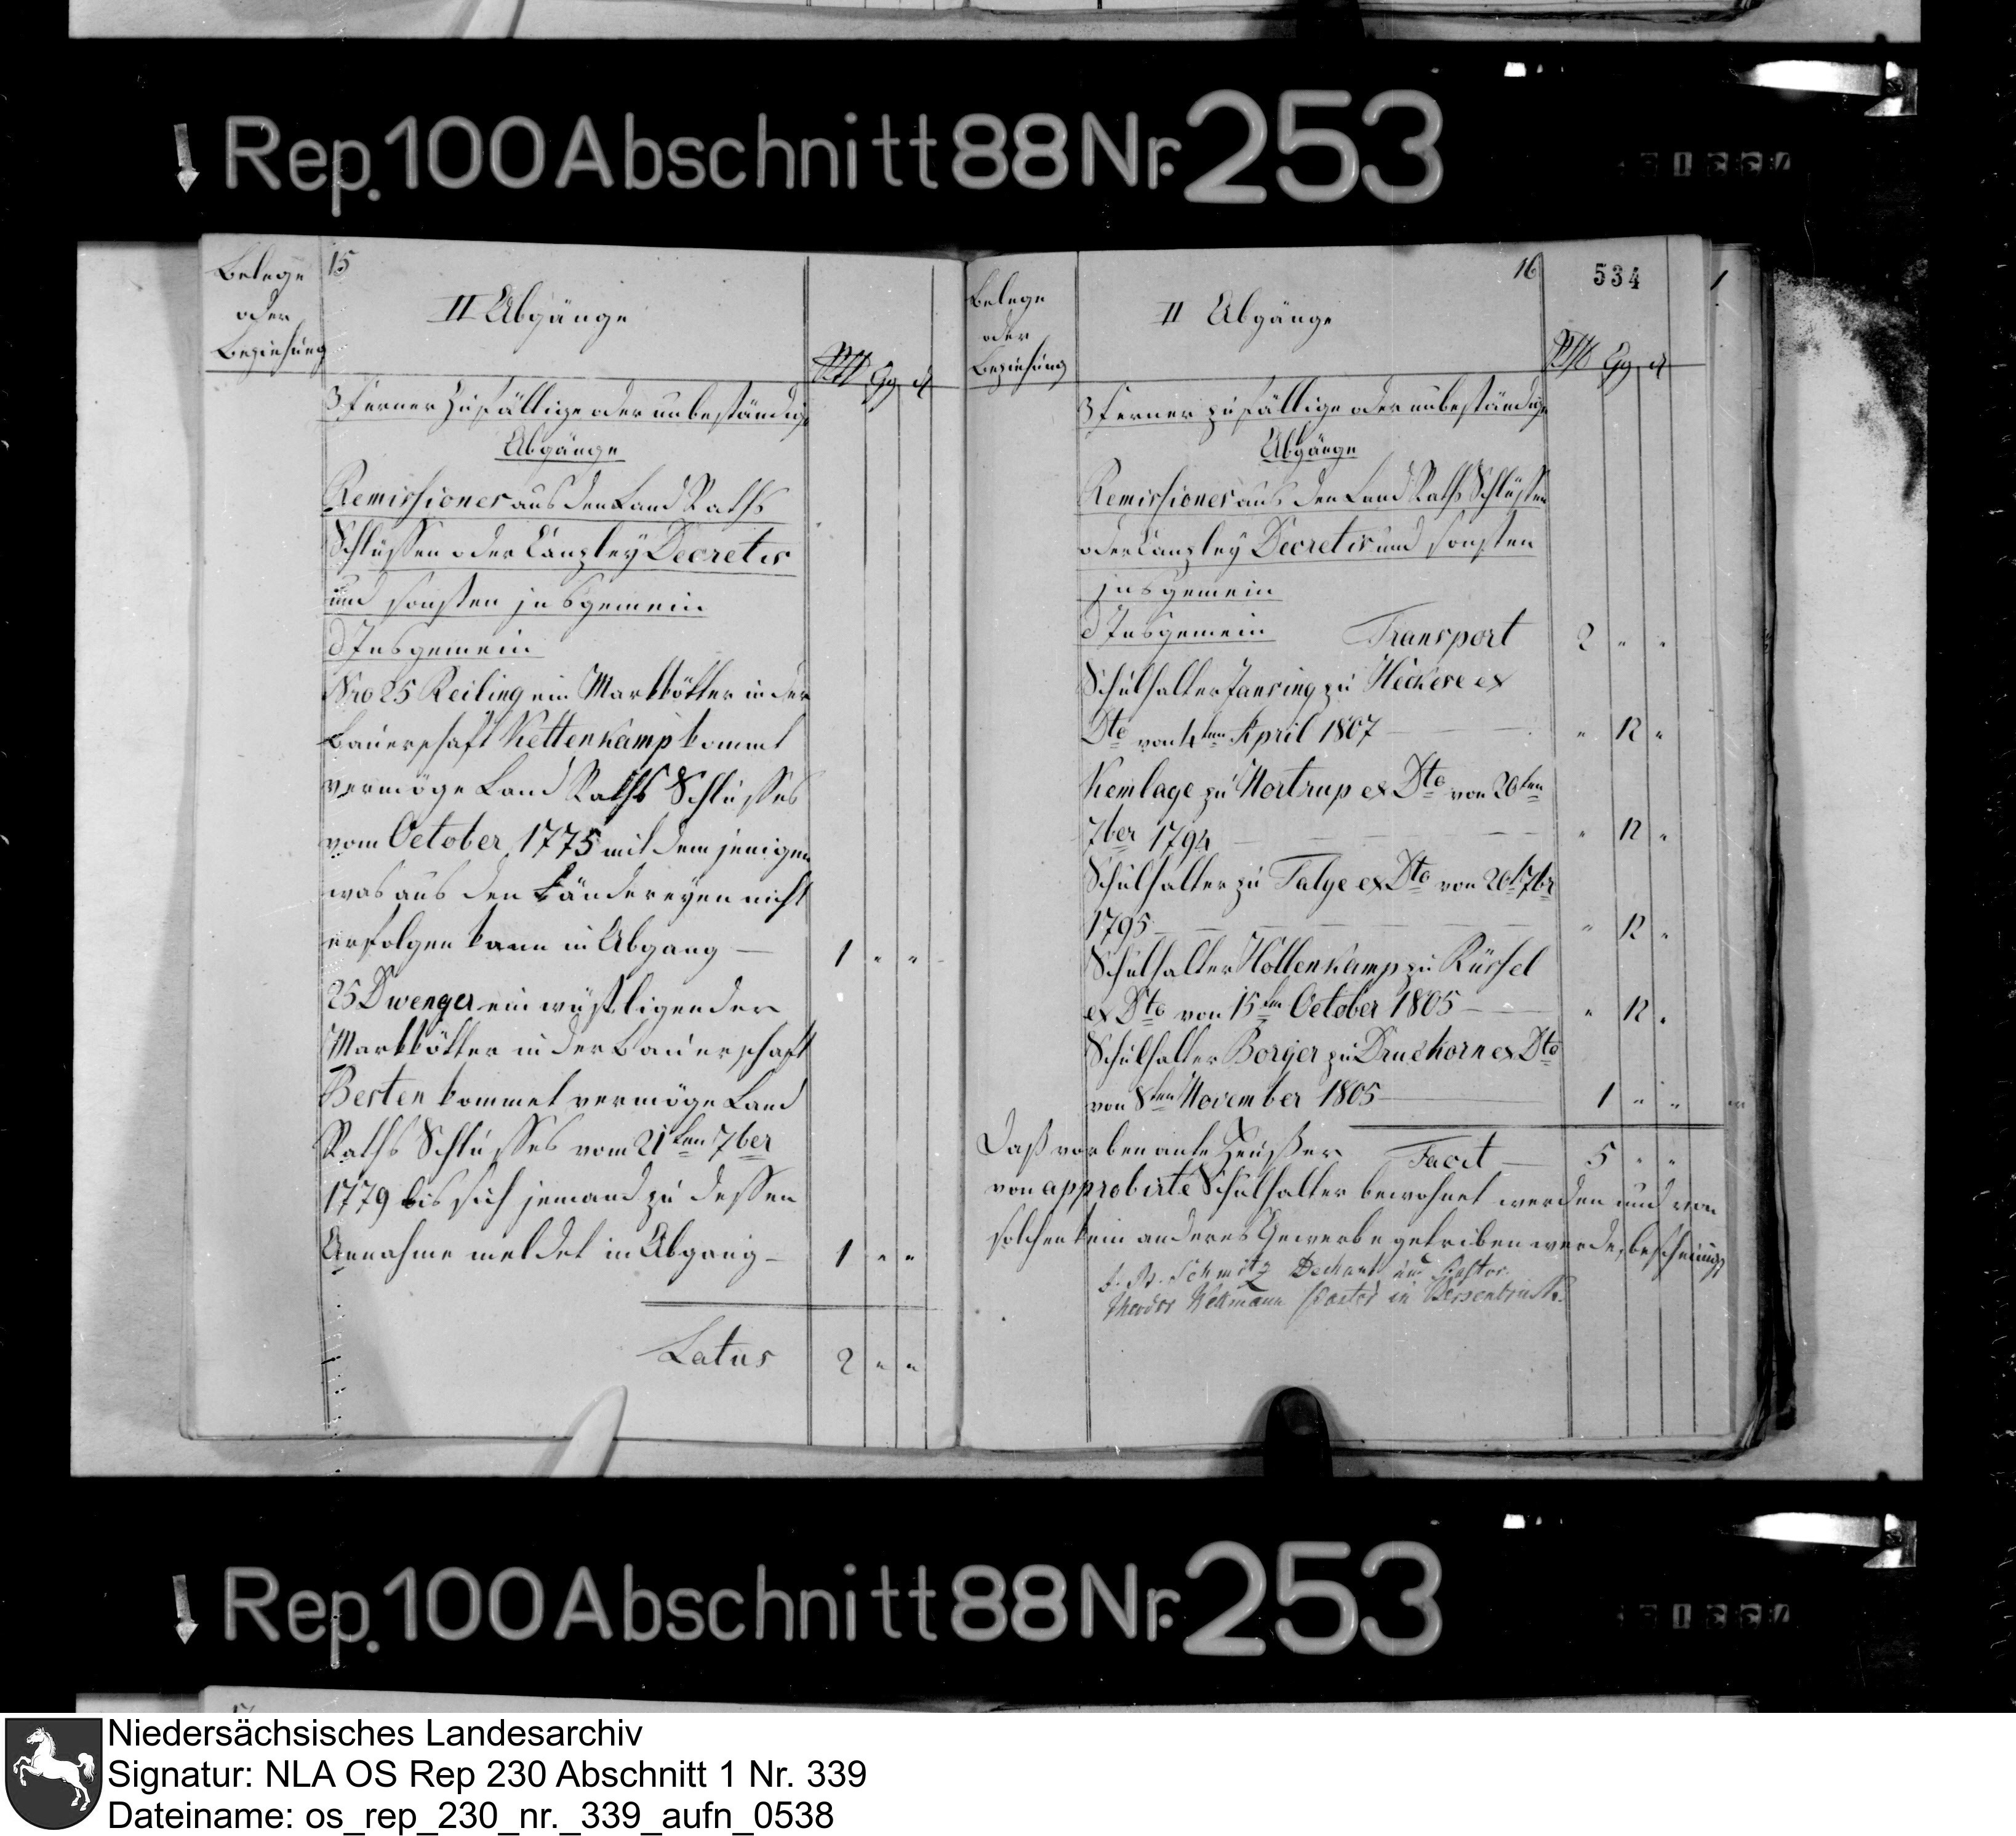 Rep. 100 Abschnitt 88 Nr. 253
Belege
oder
Beziehung
15
II Abgänge
Rtl Gg d
3 ferner zufällige oder unbeständige
Abgänge
Remissiones aus den Land Raths
Schlüssen oder Canzley Decretis
und sonsten insgemein
d Insgemein
Nro 25 Reiling ein Markkötter in der
Bauerschaft Kettenkamp kommt
vermöge Land Raths Schlusses
vom October 1775 mit dem jenigen
was aus den Ländereyen nicht
erfolgen kann in Abgang — 1 " "
25 Dwenger ein wüstligender
Markkötter in der Bauerschaft
Besten kommet vermöge Land
Raths Schlusses vom 21ten 7ber
1779 bis sich jemand zu dessen
Annahme meldet in Abgang — 1 " "
Latus 2 " "
Belege
oder
Beziehung
16
534
II Abgänge
Rtl Gg d
3 ferner zufällige oder unbeständige
Abgänge
Remissiones aus den Land Raths Schlüssen
oder Canzley Decretis und sonsten
insgemein
d Insgemein Transport 2 " "
Schulhalter Jansing zu Heckese ex
Dto von 4ten April 1807 — " 12 "
Kemlage zu Nortrup ex Dto von 20ten
7ber 1794 — " 12 "
Schulhalter zu Talge ex Dto von 26t 7br
1795 — " 12 "
Schulhalter Hollenkamp zu Rüssel
ex Dto von 15ten October 1805 — " 12 "
Schulhalter Borger zu Druchorn ex Dto
von 8ten November 1805 — 1 " "
Daß vorbenante Heußer Facit — 5 " "
von approbirte Schulhalter bewohnet werden und von
solchen kein anderes Gewerbe getrieben werde, bescheinigt
Schmitz Dechant und Pastor
Theodor Pastor in Bersenbrück.
Rep. 100 Abschnitt 88 Nr. 253
Niedersächsisches Landesarchiv
Signatur: NLA OS Rep 230 Abschnitt 1 Nr. 339
Dateiname: os_rep_230_nr._339_aufn_0538